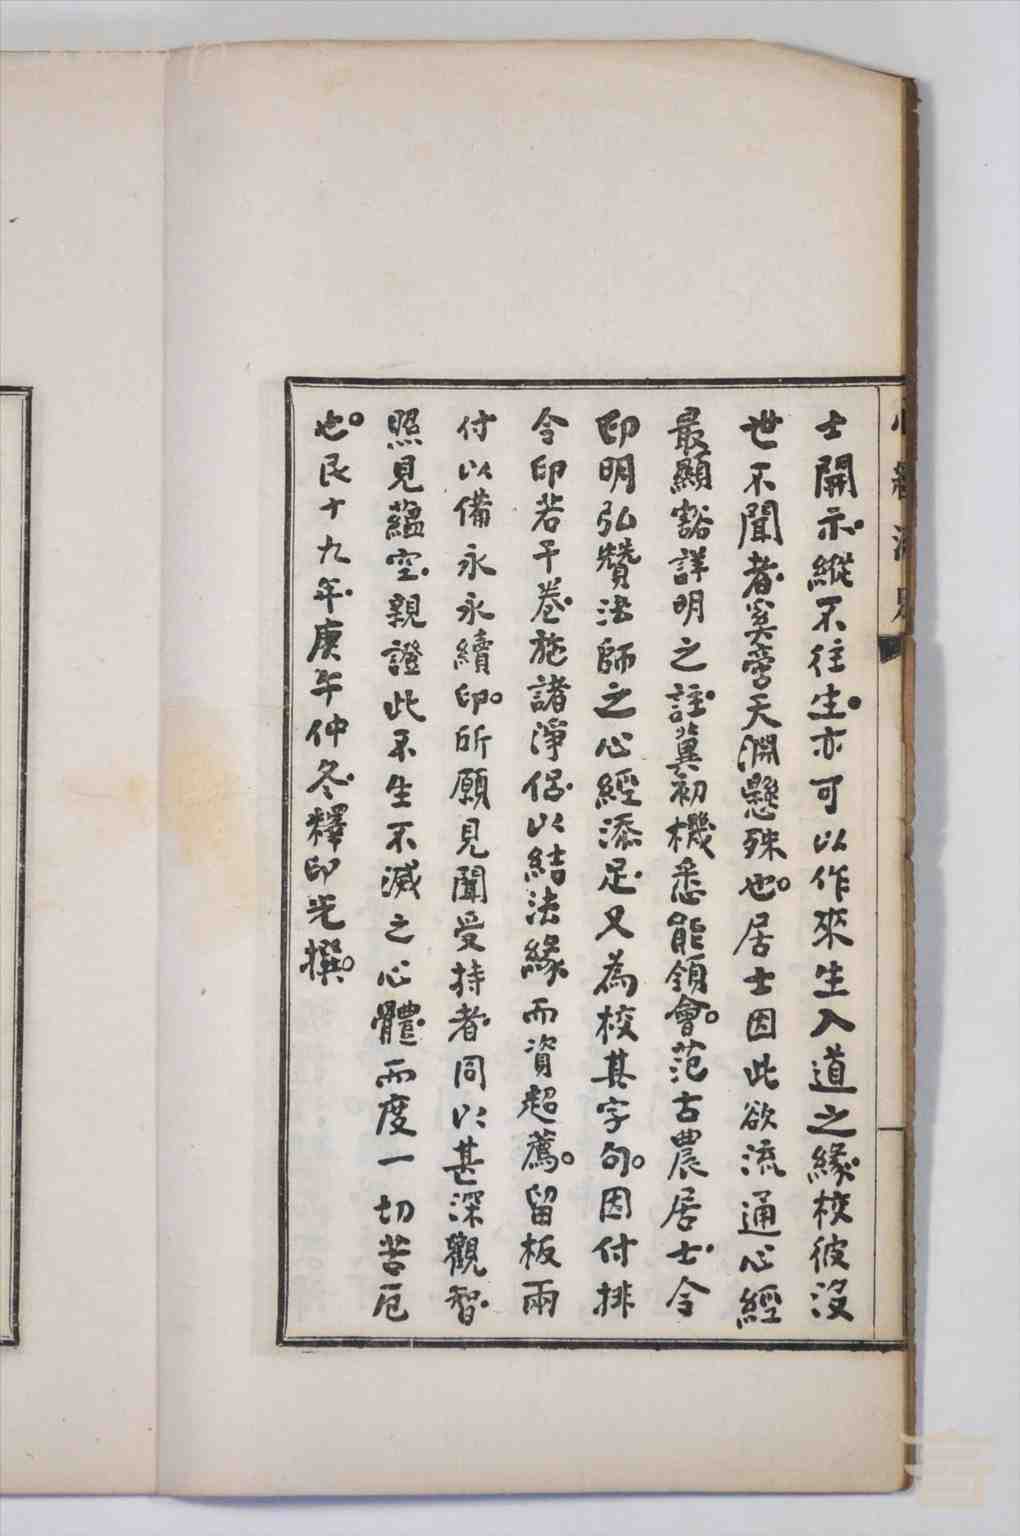 士開示。縱不往生。亦可以作來生入道之緣。校彼沒
世不聞者。奚啻天淵懸殊也。居士因此欲流通心經
最顯豁詳明之註。冀初機悉能領會。范古農居士。令
印明弘贊法師之心經添足。又為校其字句。因付排
令印若干卷。施諸淨侶。以結法緣。而資超薦。留板兩
付以備永永續印。所願見聞受持者。同以甚深觀智。
照見蘊空。親證此不生不滅之心體。而度一切苦厄
也。民十九年。庚午仲冬。釋印光撰。